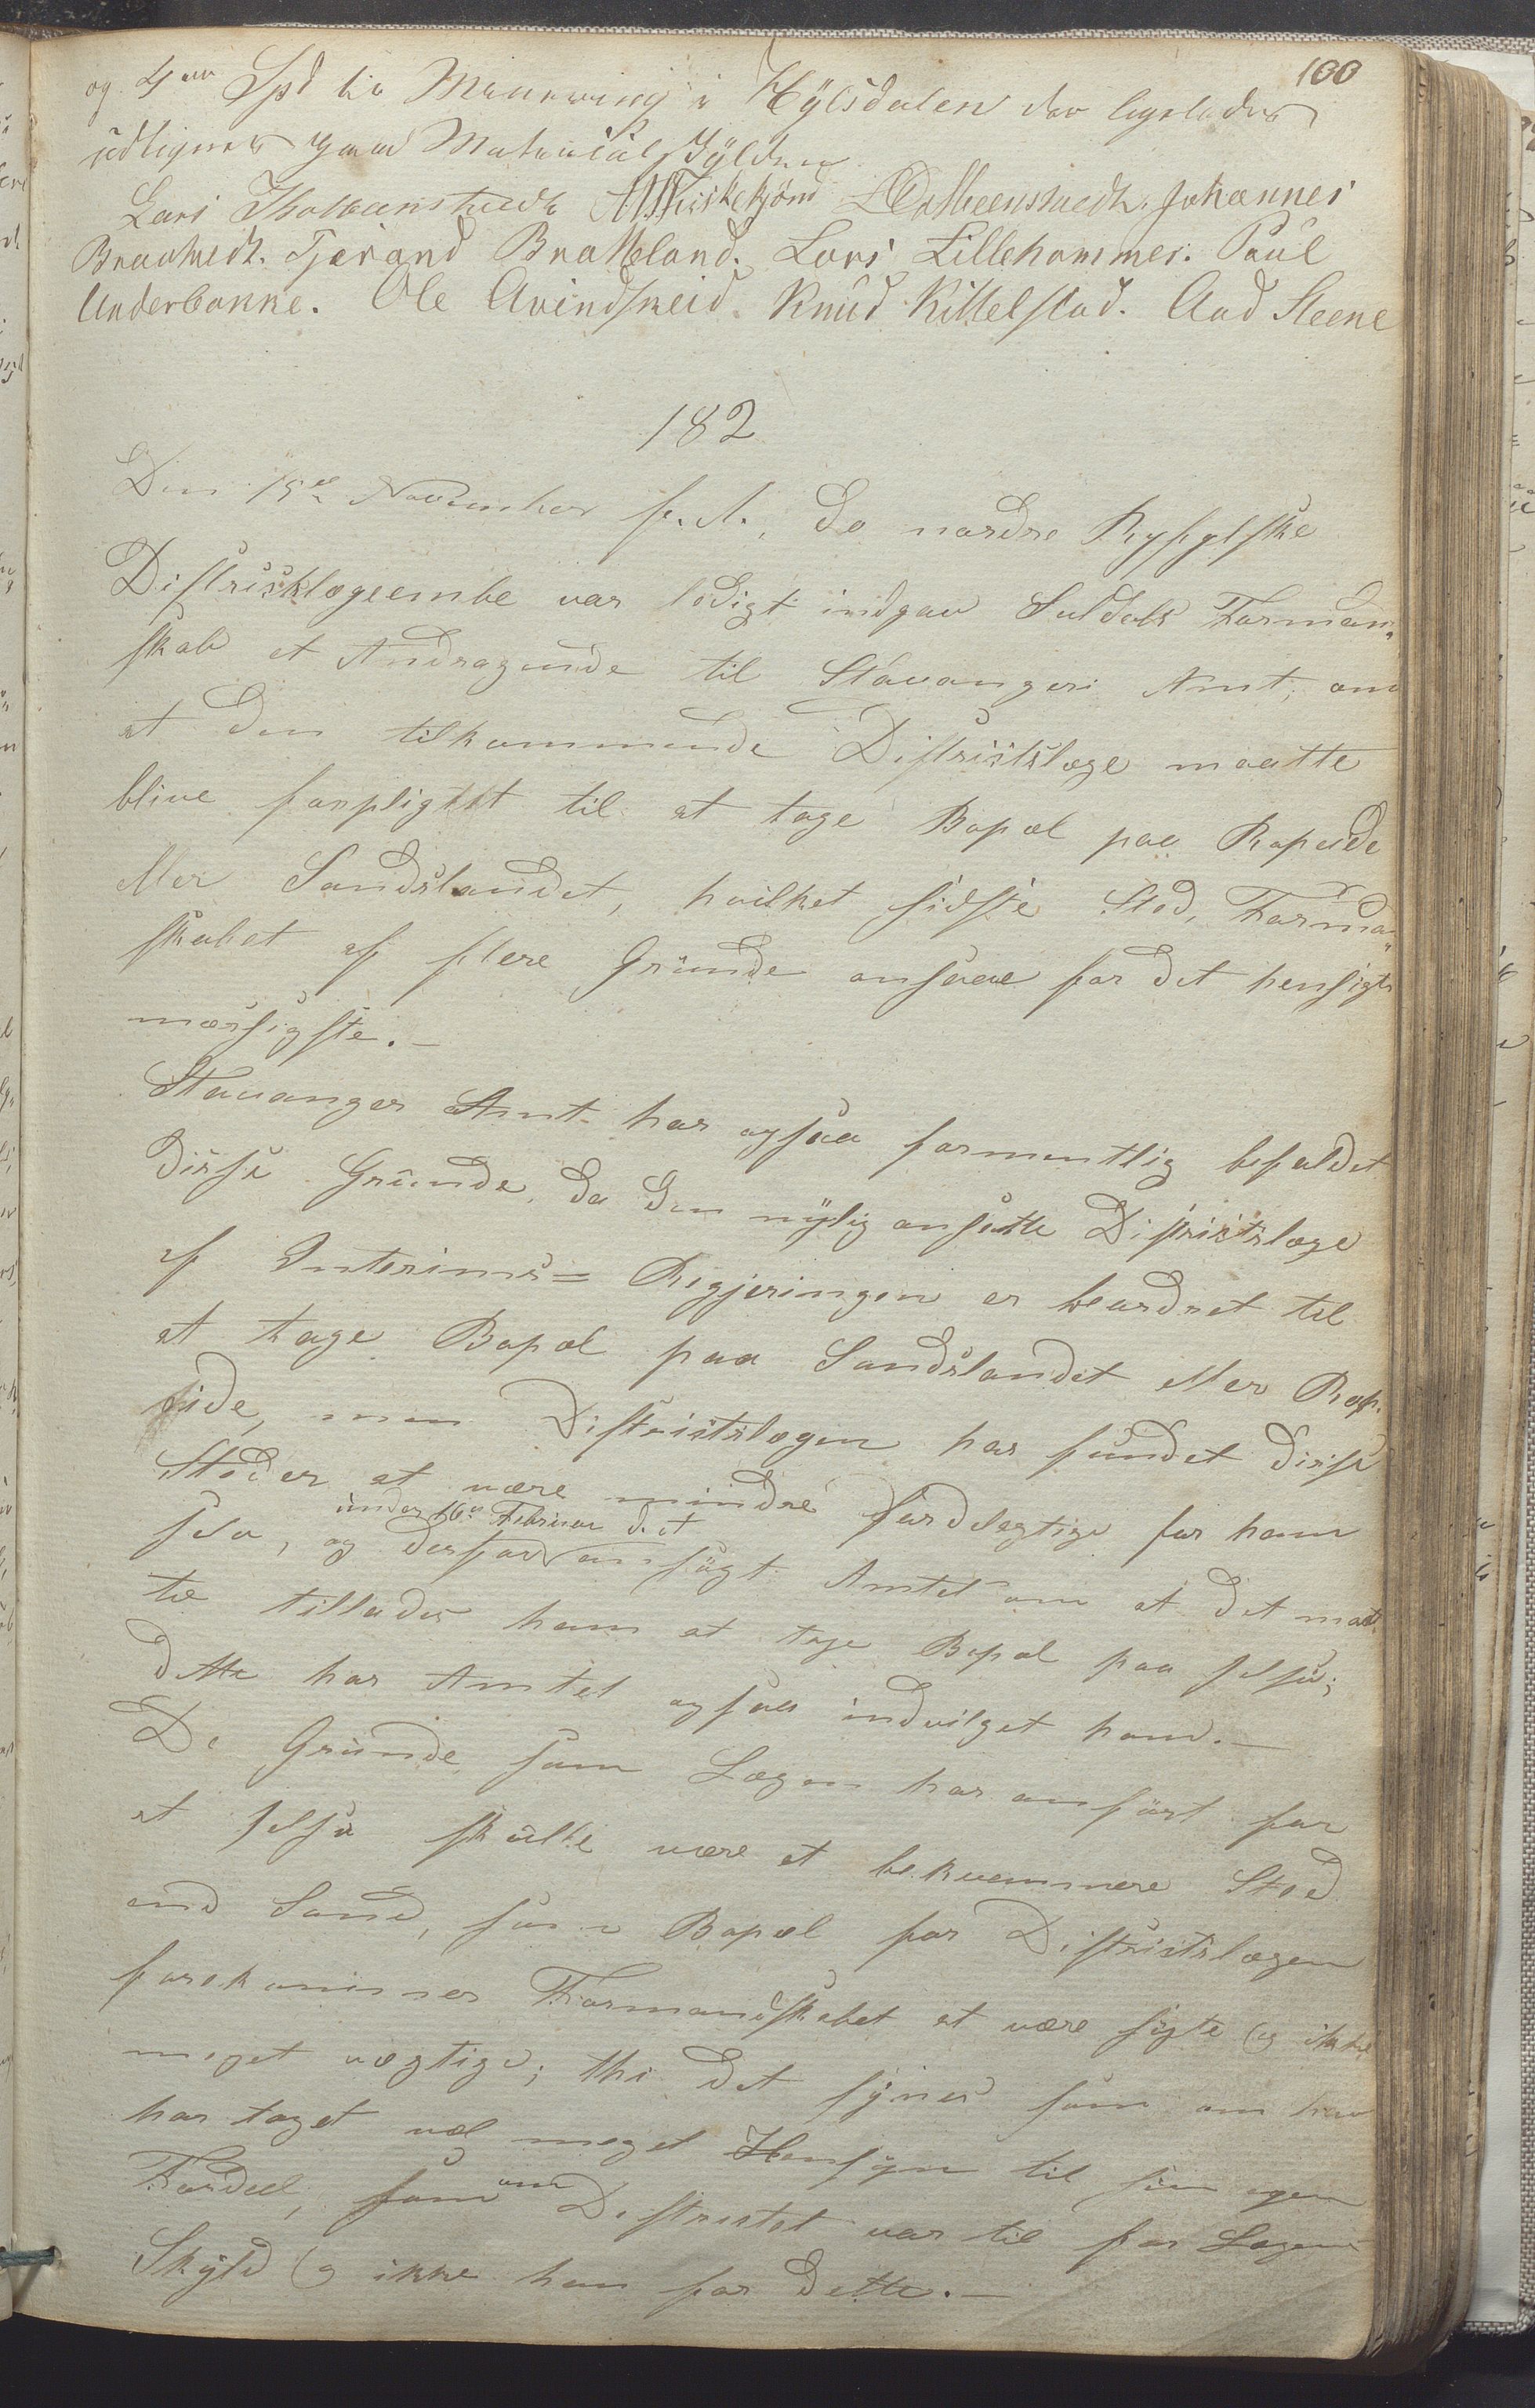 100
og 4re Spd til Minervej i Hylsdalen der ligeledes
udlignes paa Matriculskylden
Lars Tholbenstvedt Fiskekjøns Johannes
Braatvedt. Tjerand Bratteland. Lars Lillehammer. Paul
Underbakke. Ole Qvindsneid. Knud Kittelstad. Aad Steene
182
Den 15de November f. A., da nordre Ryfylkske
Districklægeembe var ledigt indgav Suldals Forman„
skab et Andragende til Stavanger Amt, om
at den tilkommende Districtslæge maatte
blive forpligtet til at tage Bopæl paa Ropeide
eller Sandslandet, hvilket sidste Sted, Forman„
skabet af flere Grunde ansaae for det hensigts
mæssigste.—
Stavanger Amt har ogsaa formentlig bifaldet
disse Grunde, da den nylig ansatte Districtslæge
af Interims= Regjeringen er beordret til
at tage Bopæl paa Sandslandet eller Rop„
eide, men Districtslægen har fundet disse
Steder at være mindre fordelagtige for ham
under 16de Februar d. A.
selv, og derfor ansøgt Amtet om at det maat
te tillades ham at tage Bopæl paa Jelsø;
dette har Amtet ogsaa indvilget ham.—
De Grunde som Lægen har anført for
at Jelsø skulle være et bekvemmere Sted
end Sand, som Bopæl for Districtslægen
forekommer Formandskabet at være søgte og ikke
meget vægtige; thi det synes som om han
har taget vel meget Hensyn til sin egen
Fordeel, som om Districtet var til for Lægens
Skyld og ikke han for dette.—